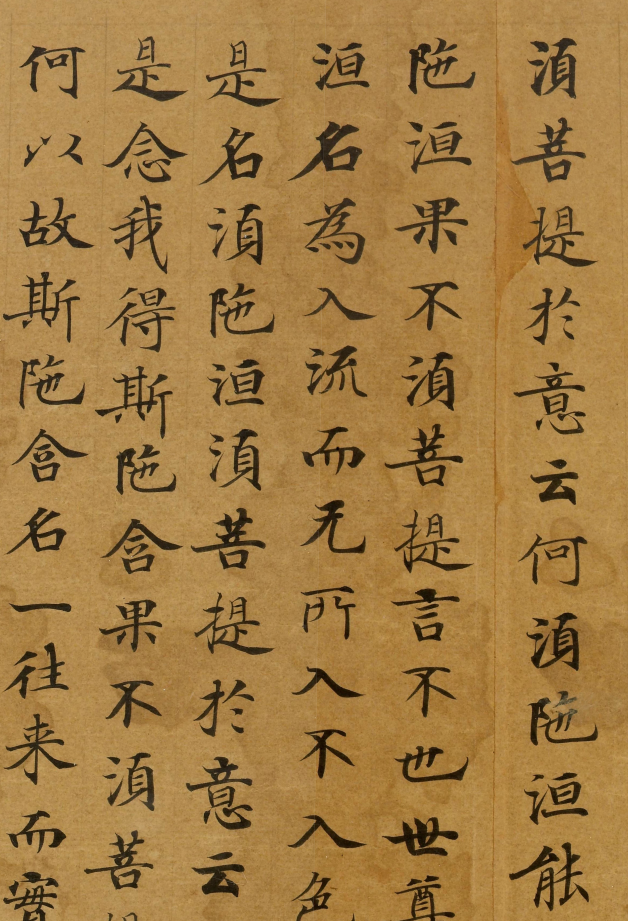 湏菩提扵意云何湏陁洹能
陁洹果不湏菩提言不也世尊
洹名為入流而无所入不入色
是名湏陁洹湏菩提扵意云
是念我得斯陁含果不湏菩
何以故斯陁含名一往来而實